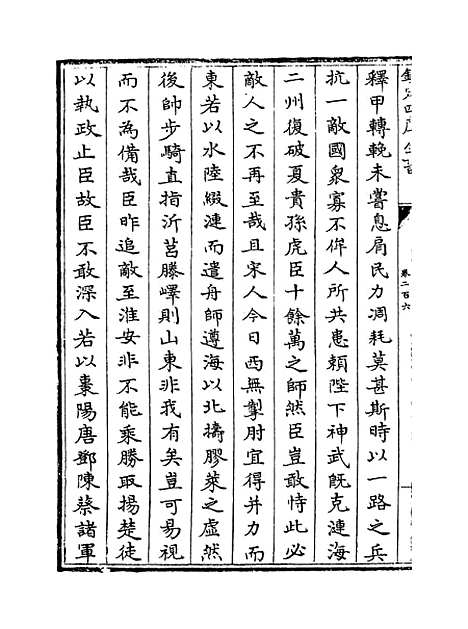 欽定四庫全書
卷二百六
釋甲轉輓未嘗息肩民力凋耗莫甚斯時以一路之兵
抗一敵國衆寡不侔人所共患賴陛下神武既克漣海
二州復破夏貴孫虎臣十餘萬之師然臣豈敢恃此必
敵人之不再至哉且宋人今日西無掣肘宜得并力而
東若以水陸綴漣而遣舟師遵海以北擣膠萊之虛然
後帥步騎直指沂莒滕嶧則山東非我有矣豈可易視
而不為備哉臣昨追敵至淮安非不能乘勝取揚楚徒
以執政止臣故臣不敢深入若以棗陽唐鄧陳蔡諸軍